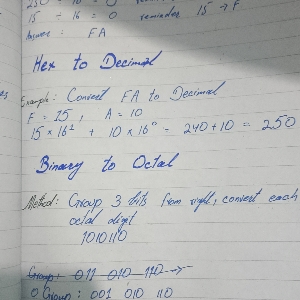 250 ÷ 16 = 0
15 ÷ 16 = 0 reminder 15 → F
Answer : FA
Hex to Decimal
Example: Convert FA to Decimal
F = 15 , A = 10
15 × 16¹ + 10 × 16⁰ = 240+10 = 250
Binary to Octal
Method: Group 3 bits from right, convert each
octal digit
1010110
Group: 011 010 110
Group: 001 010 110